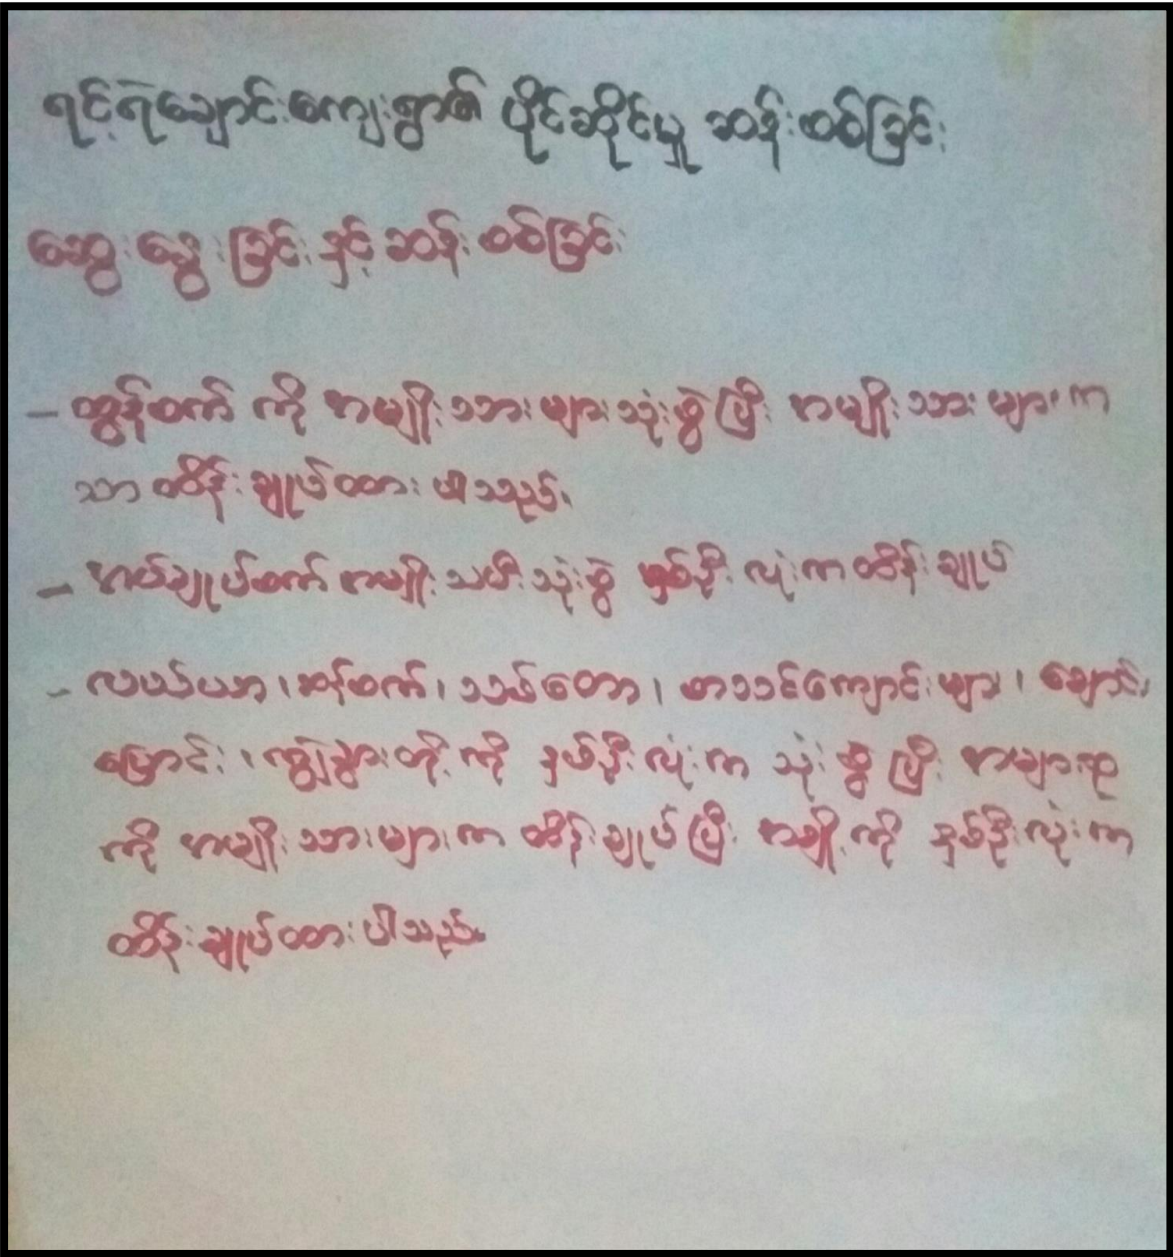 ရင့်ရဲချောင်းကျေးရွာ၏ ပိုင်ဆိုင်မှု ဆန်းစစ်ခြင်း
ဆွေးနွေးခြင်းနှင့် ဆန်းစစ်ခြင်း
- ထွန်စက် ကို အမျိုးသားများသုံးစွဲပြီး အမျိုးသားများက
သာ ထိန်းချုပ်ထားပါသည်။
- အပ်ချုပ်စက် အမျိုးသမီးသုံးစွဲ နှစ်ဦးလုံးကထိန်းချုပ်
- လယ်ယာ၊ ဆန်စက်၊ သစ်တော၊ စာသင်ကျောင်းများ၊ ချောင်း၊
မြောင်း၊ ကျွဲနွားတို့ကို နှစ်ဦးလုံးက သုံးစွဲပြီး အများစု
ကို အမျိုးသားများက ထိန်းချုပ်ပြီး အချို့ကို နှစ်ဦးလုံးက
ထိန်းချုပ်ထားပါသည်။